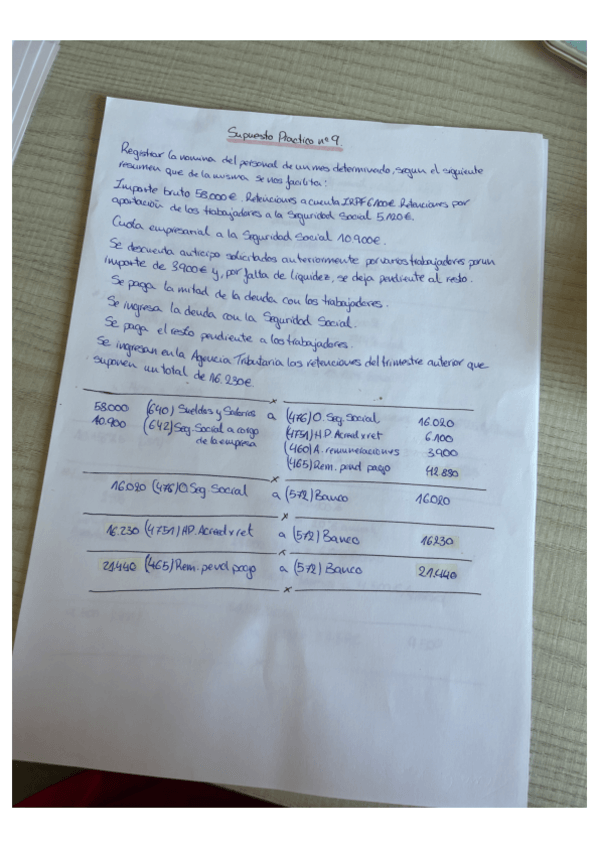 Supuesto Práctico nº 9.
Registrar la nomina del personal de un mes determinado, segun el siguiente
resumen que de la misma se nos facilita:
Importe bruto 58.000€. Retenciones a cuenta IRPF 6.100€. Retenciones por
aportación de los trabajadores a la Seguridad Social 5.120€.
Cuota empresarial a la Seguridad Social 10.900€.
Se descuenta anticipo solicitados anteriormente por varios trabajadores por un
importe de 3.900€ y, por falta de liquidez, se deja pendiente al resto.
Se paga la mitad de la deuda con los trabajadores.
Se ingresa la deuda con la Seguridad Social.
Se paga el resto pendiente a los trabajadores.
Se ingresan en la Agencia Tributaria las retenciones del trimestre anterior que
suponen un total de 16.230€.
58.000 (640) Sueldos y Salarios a (476) O. Seg. Social 16.020
10.900 (642) Seg. Social a cargo de la empresa (4751) HP. Acreed x ret 6.100
(460) A. remuneraciones 3.900
(465) Rem. pend pago 42.880
16.020 (476) O Seg Social a (572) Banco 16.020
16.230 (4751) HP. Acreed x ret a (572) Banco 16.230
21.440 (465) Rem. pend pago a (572) Banco 21.440